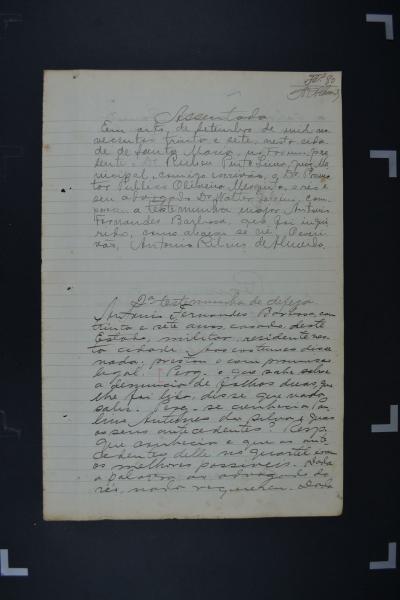 Fls. 80
Assentada
Em oito de Setembro de mil no-
vecentos trinta e sete nesta cida-
de de Santa Maria, no forum, pre-
sente o Dr. Pinto Lima, juiz Mu-
nicipal, comigo escrivão, o Dr. Promo-
tor Publico Oliveira Mesquita, o réo e
seu advogado Dr. Walter Jobim, com-
pareceu a testemunha major Antonio
Fernandes Barbosa, que foi inqui-
rido, como abaixo se vê. O escri-
vão, Antonio Ribas de Almeida.
2ª testemunha de defeza
Antonio Fernandes Barbosa, com
trinta e sete anos, casado, deste
Estado, militar, residente nes-
ta cidade. Aos costumes disse
nada, prestou o compromisso
legal. Perg. o que sabe sobre
a denuncia de folhas duas, que
lhe foi lida, disse que nada
sabe. Perg. se conhecia
Antunes da Silva e quaes
os seus antecedentes? Resp.
que conhecia e que os ante-
cedentes delle no quartel eram
os melhores possiveis. Dada
a palavra ao advogado do
réo, nada requereu. Dada